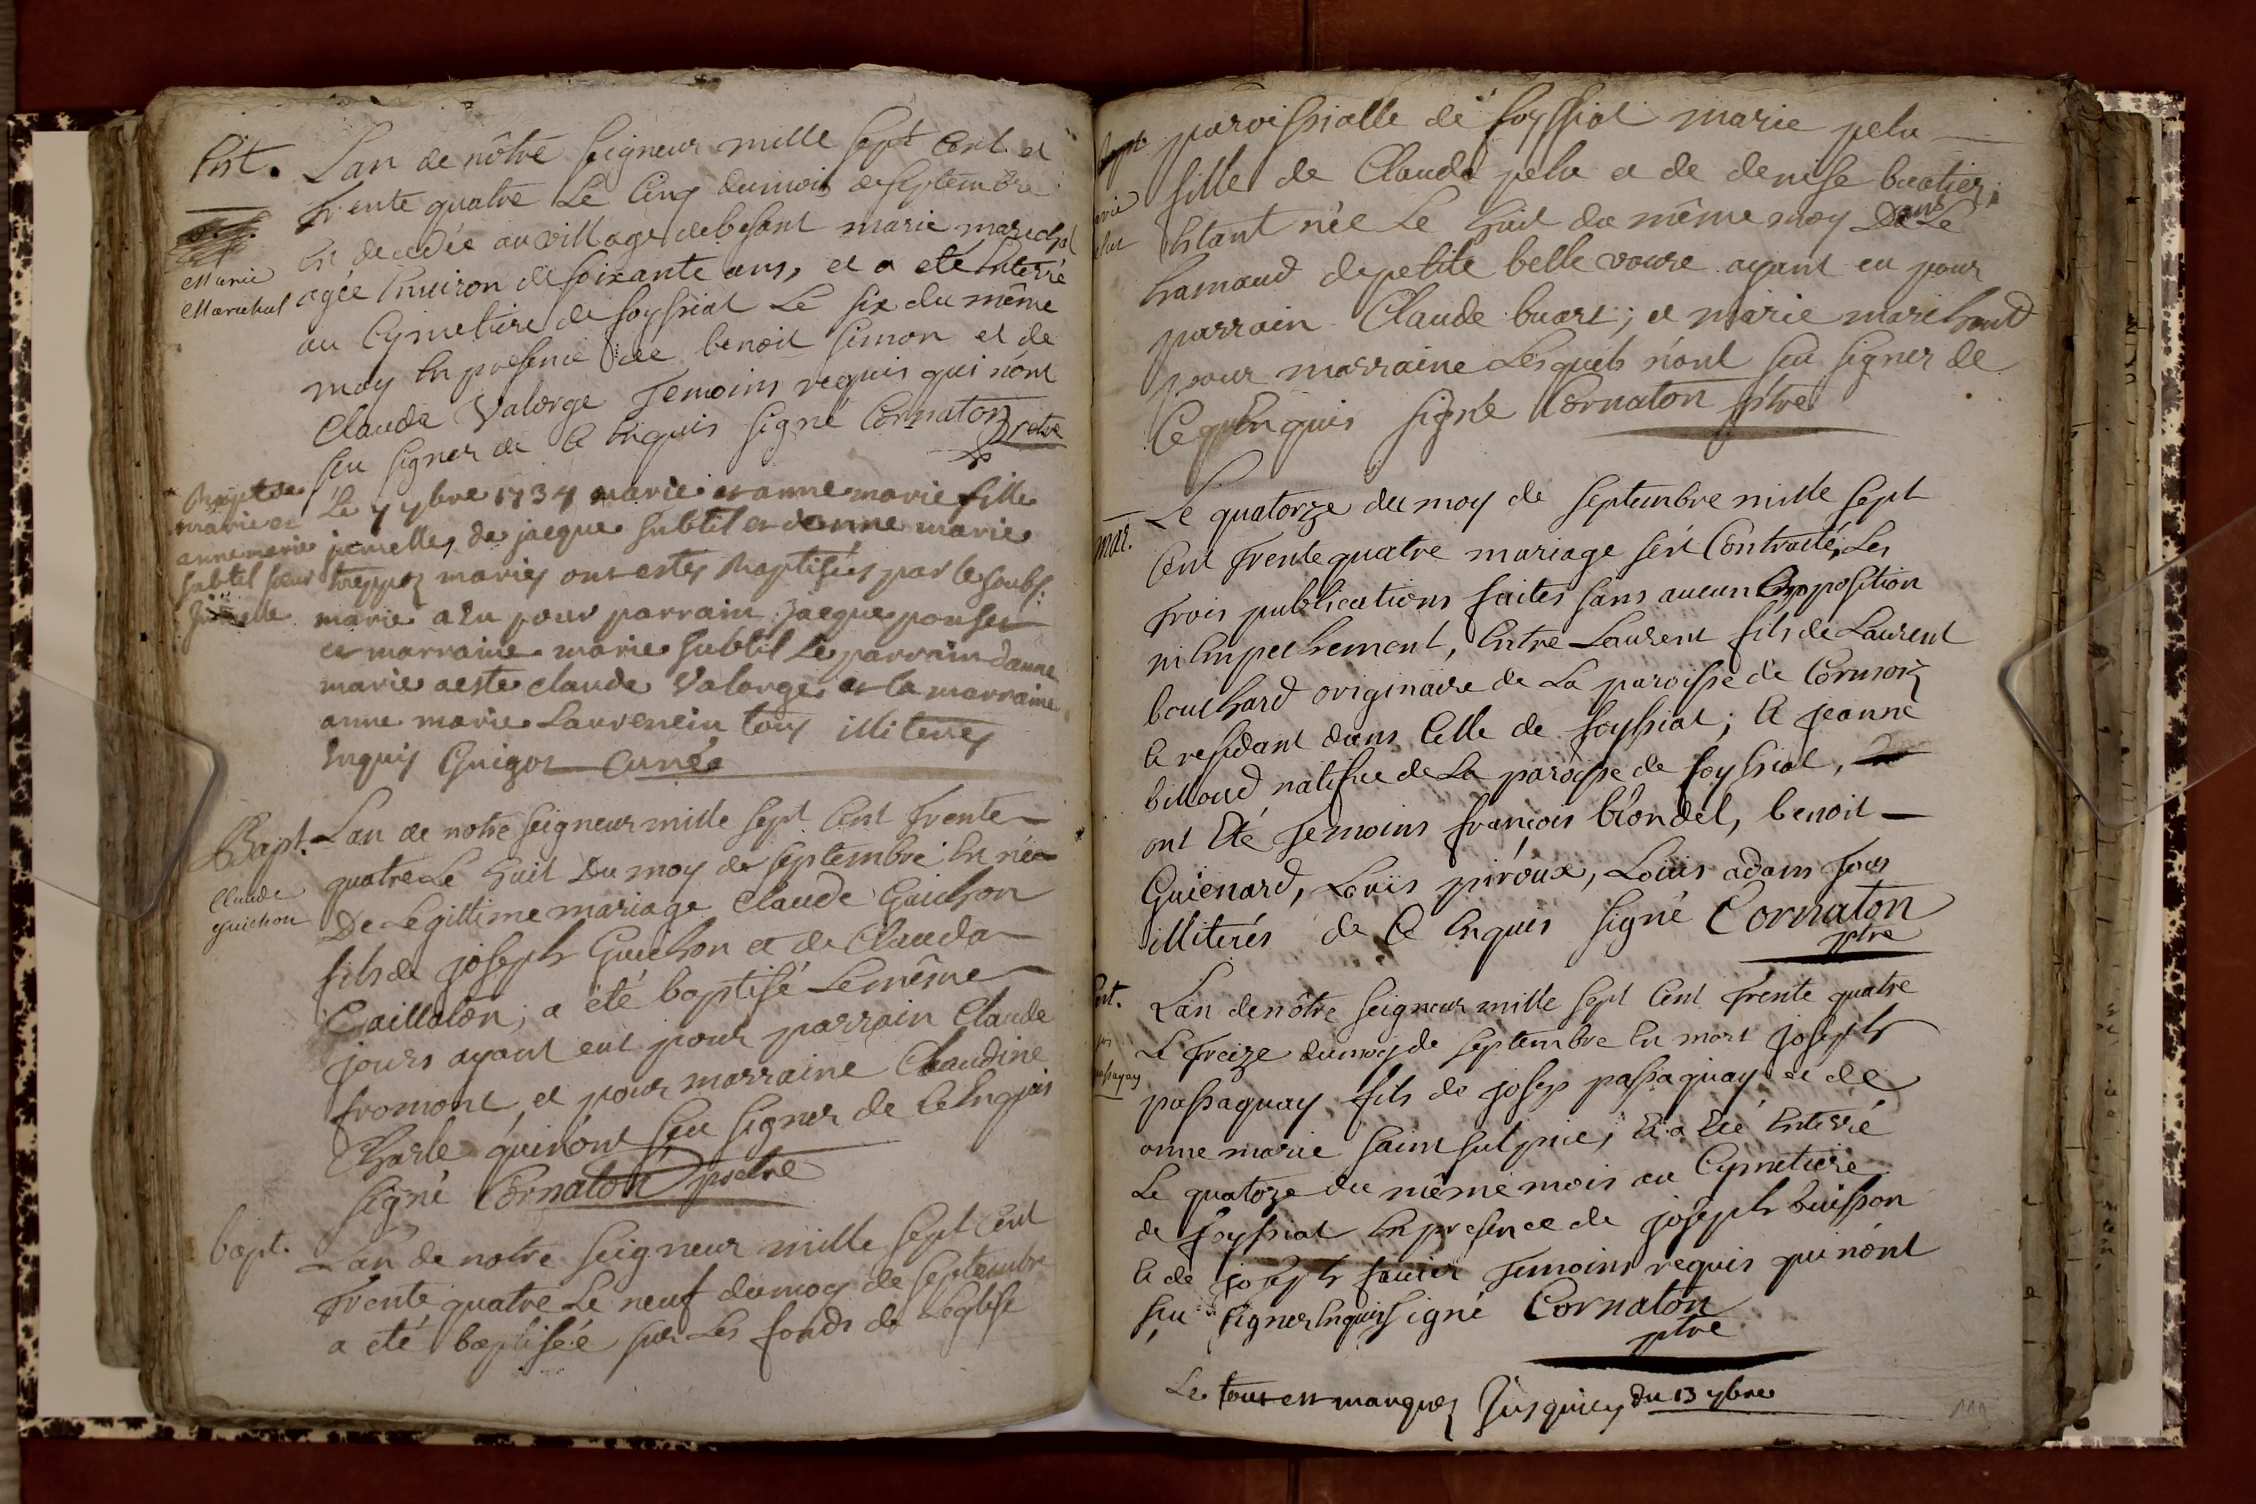 Ent.
Marie
Marechal
L'an de nôtre seigneur mille sept cent et
trente quatre Le Cinq du mois de septembre
est decedée au village de besant marie marechal
agée Environ de soixante ans, et a eté Enterré
au Cymetiere de foyssiat Le six du même
moy En presence de benoit simon et de
Claude Valorge Temoins requis qui n'ont
seu signer de Ce Enquis signé Cornaton Pretre
Bapt de
marie et
anne marie
subtil sœurs
Le 7 7bre 1734 marie et anne marie fille
jumelles de jacque subtil et danne marie
treppoz mariez ont estes Baptisées par le soubs.
marie a Eu pour parrain jacque ponset
et marraine marie subtil Le parrain danne
marie a este claude Valorge et la marraine
anne marie Laurencin tous illiteres
Enquis Guigot Curé
Bapt.
Claude
guichon
L'an de notre seigneur mille sept Cent Trente
quatre Le huit Du moy de septembre Est née
De Legittime mariage Claude Guichon
fils de joseph Guichon et de Clauda
Caillaton, a été baptisé Le même
jours ayant eut pour parrain Claude
fromont et pour marraine Claudine
Charle qui n'ont seu signer de Ce Enquis
signé Cornaton pretre
bapt.
L'an de notre seigneur mille sept Cent
Trente quatre Le neuf du moy de septembre
a eté baptisée sur Les fonds de L'eglise
paroissialle de foyssiat marie pela
fille de Claude pela et de denise buatier,
Etant née Le huit du même moy Dans Le
hamaud de petite belle voure ayant eu pour
parrain Claude buart; et marie marchand
pour marraine Lesquels n'ont seu signer de
Ce Enquis signé Cornaton ptre
mar.
Le quatorze du moy de septembre mille sept
Cent Trente quatre mariage s'est Contracté, Les
Trois publications faites sans aucun Opposition
ni Empechement, Entre Laurent fils de Laurent
bouchard originaire de La paroisse de Cormoz
et residant dans Celle de foyssiat; et jeanne
billoud natifve de La paroisse de foyssiat,
ont Eté Temoins françois blondel, benoit
Guienard, Loüis piroux, Loüis adam Tous
illiterés de Ce Enquis signé Cornaton
ptre
Ent.
L'an de nôtre seigneur mille sept Cent Trente quatre
Le Treize du moy de septembre Est mort joseph
passaquay fils de josep passaquay et de
anne marie saint sulpice; et a Eté Enterré
Le quatoze du même mois au Cymetiere
de foyssiat En presence de joseph buisson
et de joseph favier Temoins requis qui n'ont
seu signer Enquis signé Cornaton
ptre
Le tout en marquez jusquicy du 13 7bre